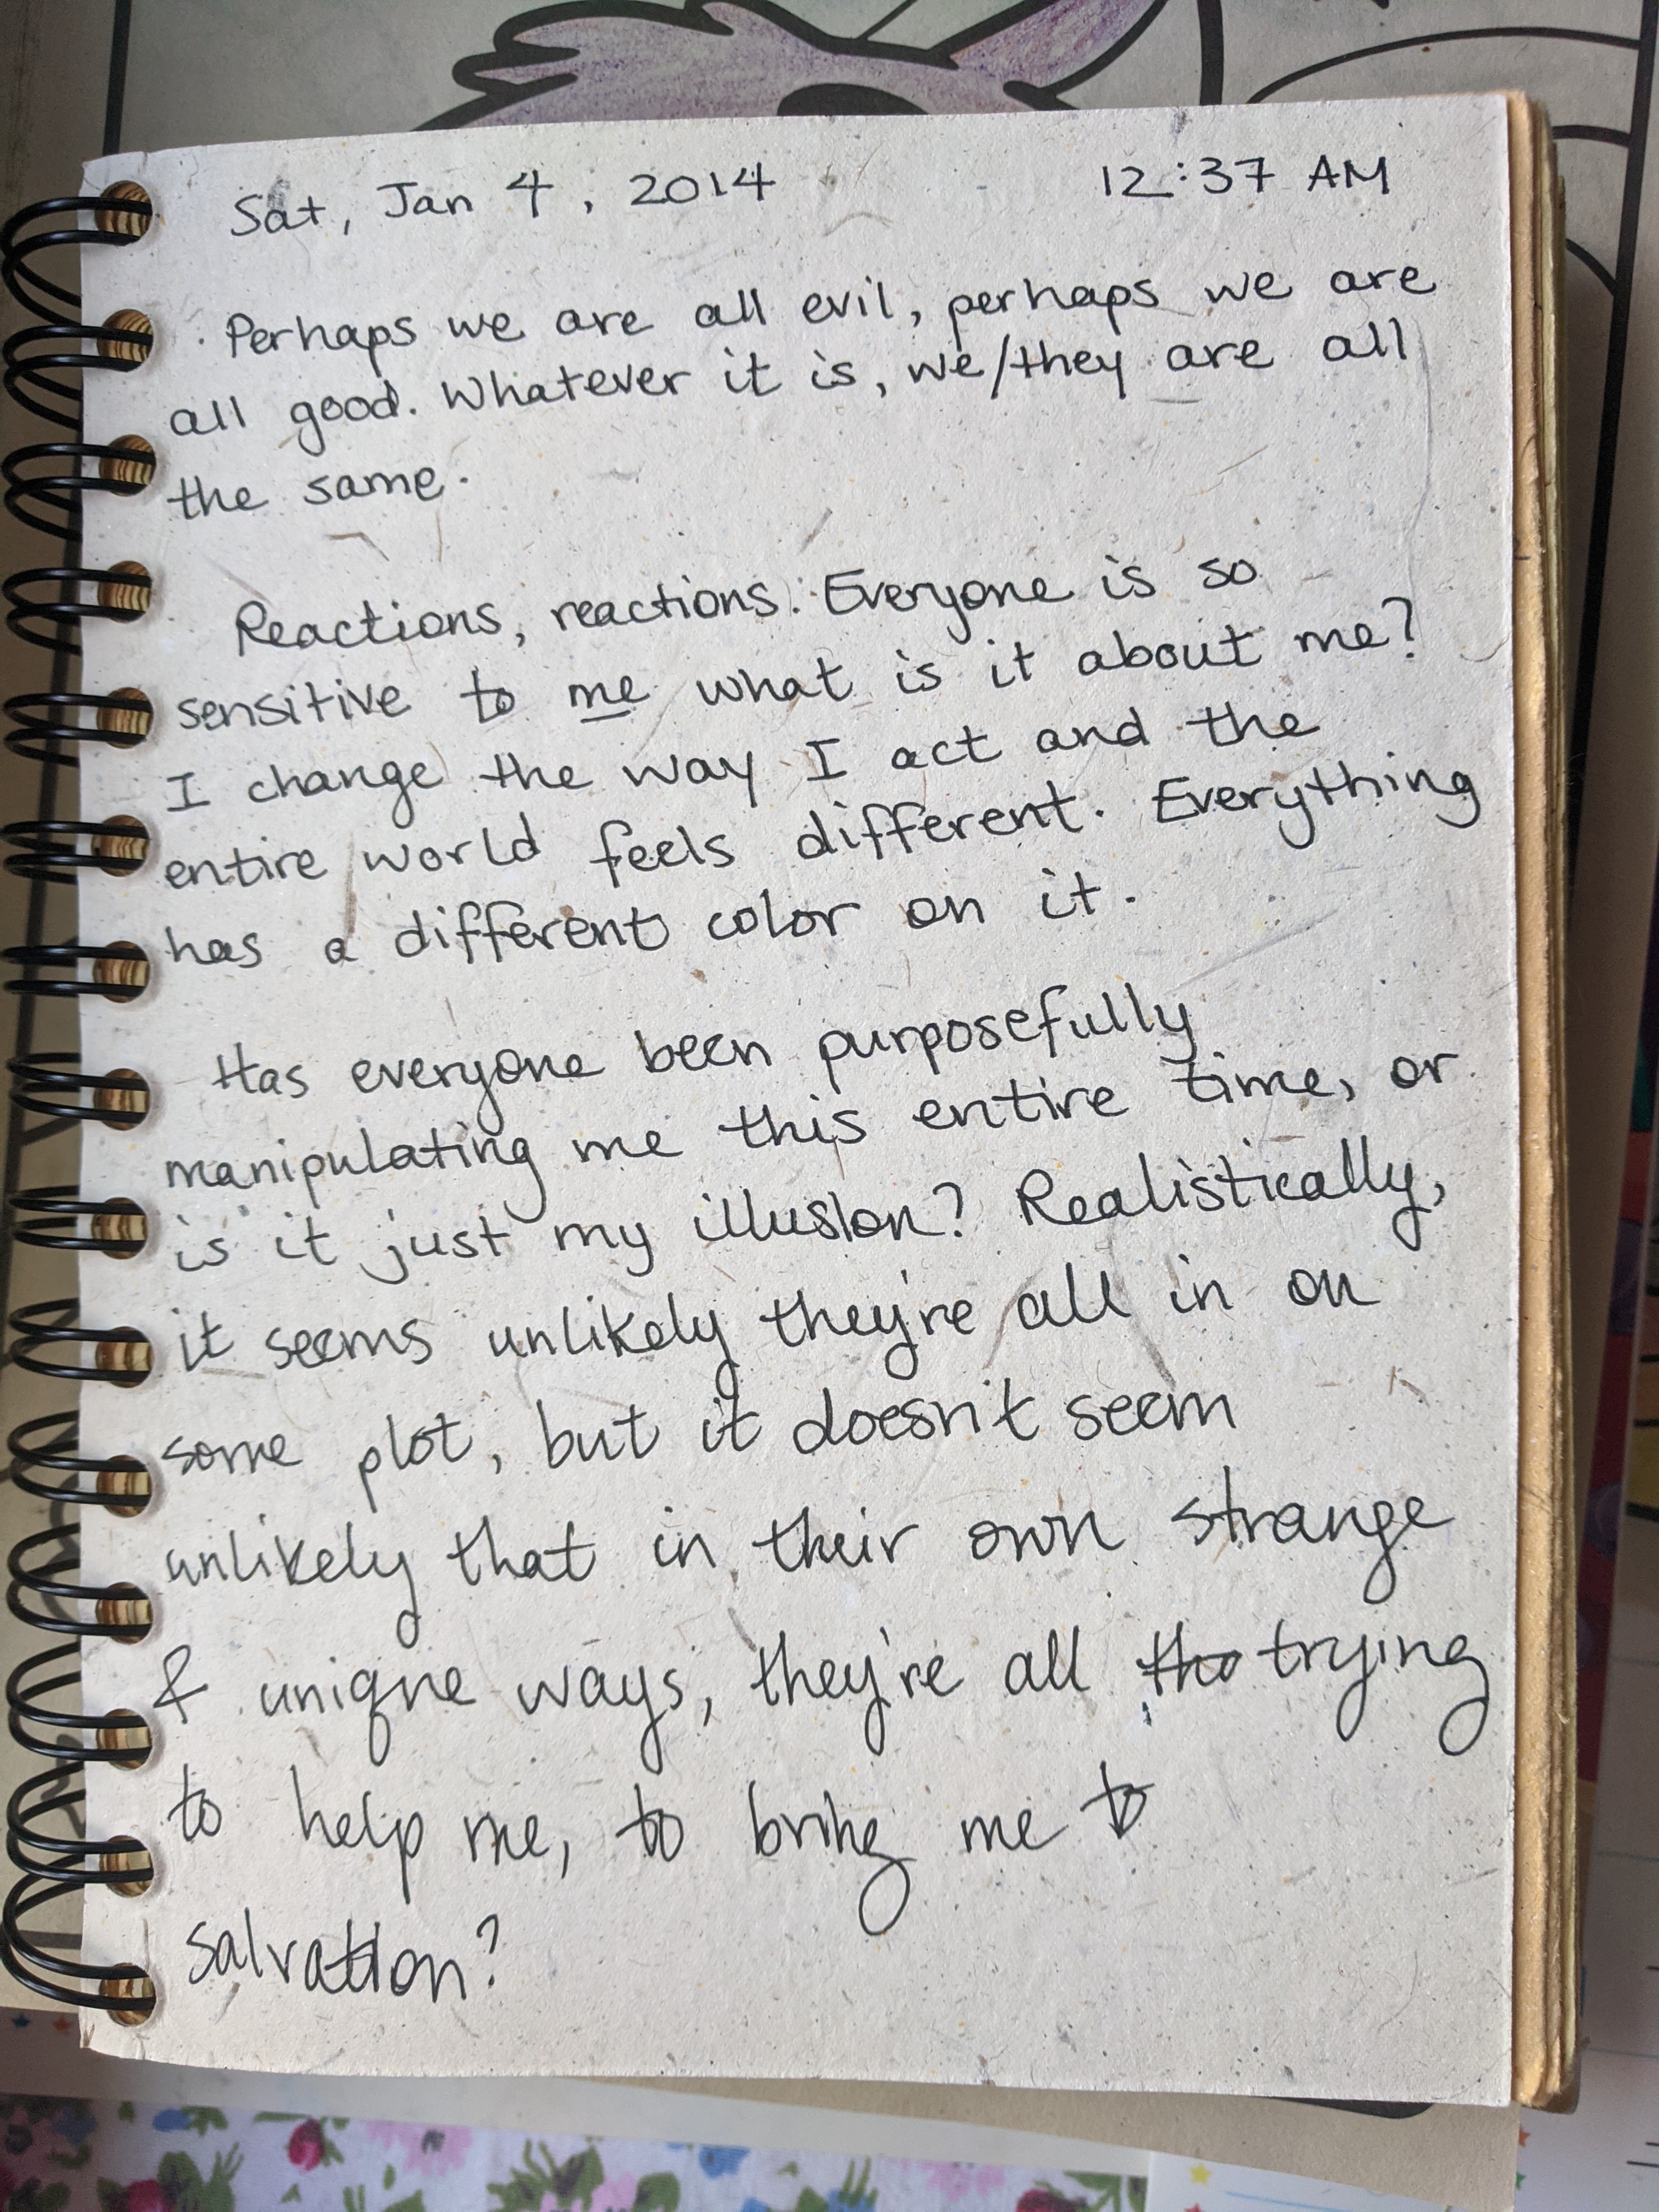 Sat, Jan 4, 2014 12:37 AM
Perhaps we are all evil, perhaps we are
all good. Whatever it is, we/they are all
the same.
Reactions, reactions. Everyone is so
sensitive to me what is it about me?
I change the way I act and the
entire world feels different. Everything
has a different color on it.
Has everyone been purposefully
manipulating me this entire time, or
is it just my illusion? Realistically,
it seems unlikely they're all in on
some plot, but it doesn't seem
unlikely that in their own strange
& unique ways, they're all tho trying
to help me, to bring me to
salvation?